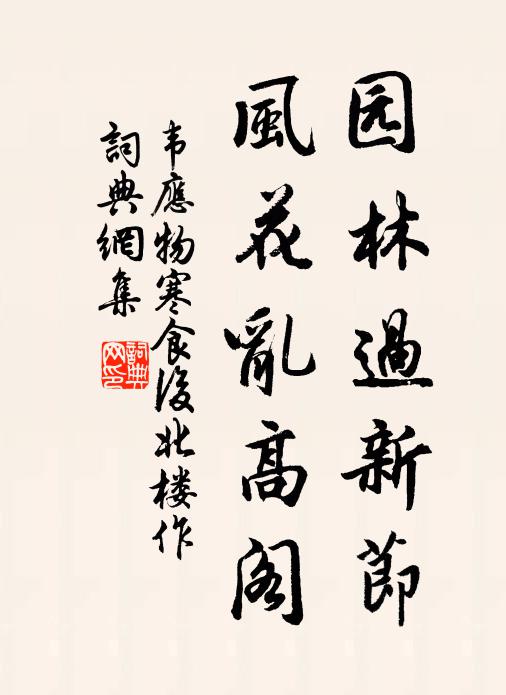 园林過新節
風花亂高阁
韦應物寒食後北楼作
詞典網集
詞典网印